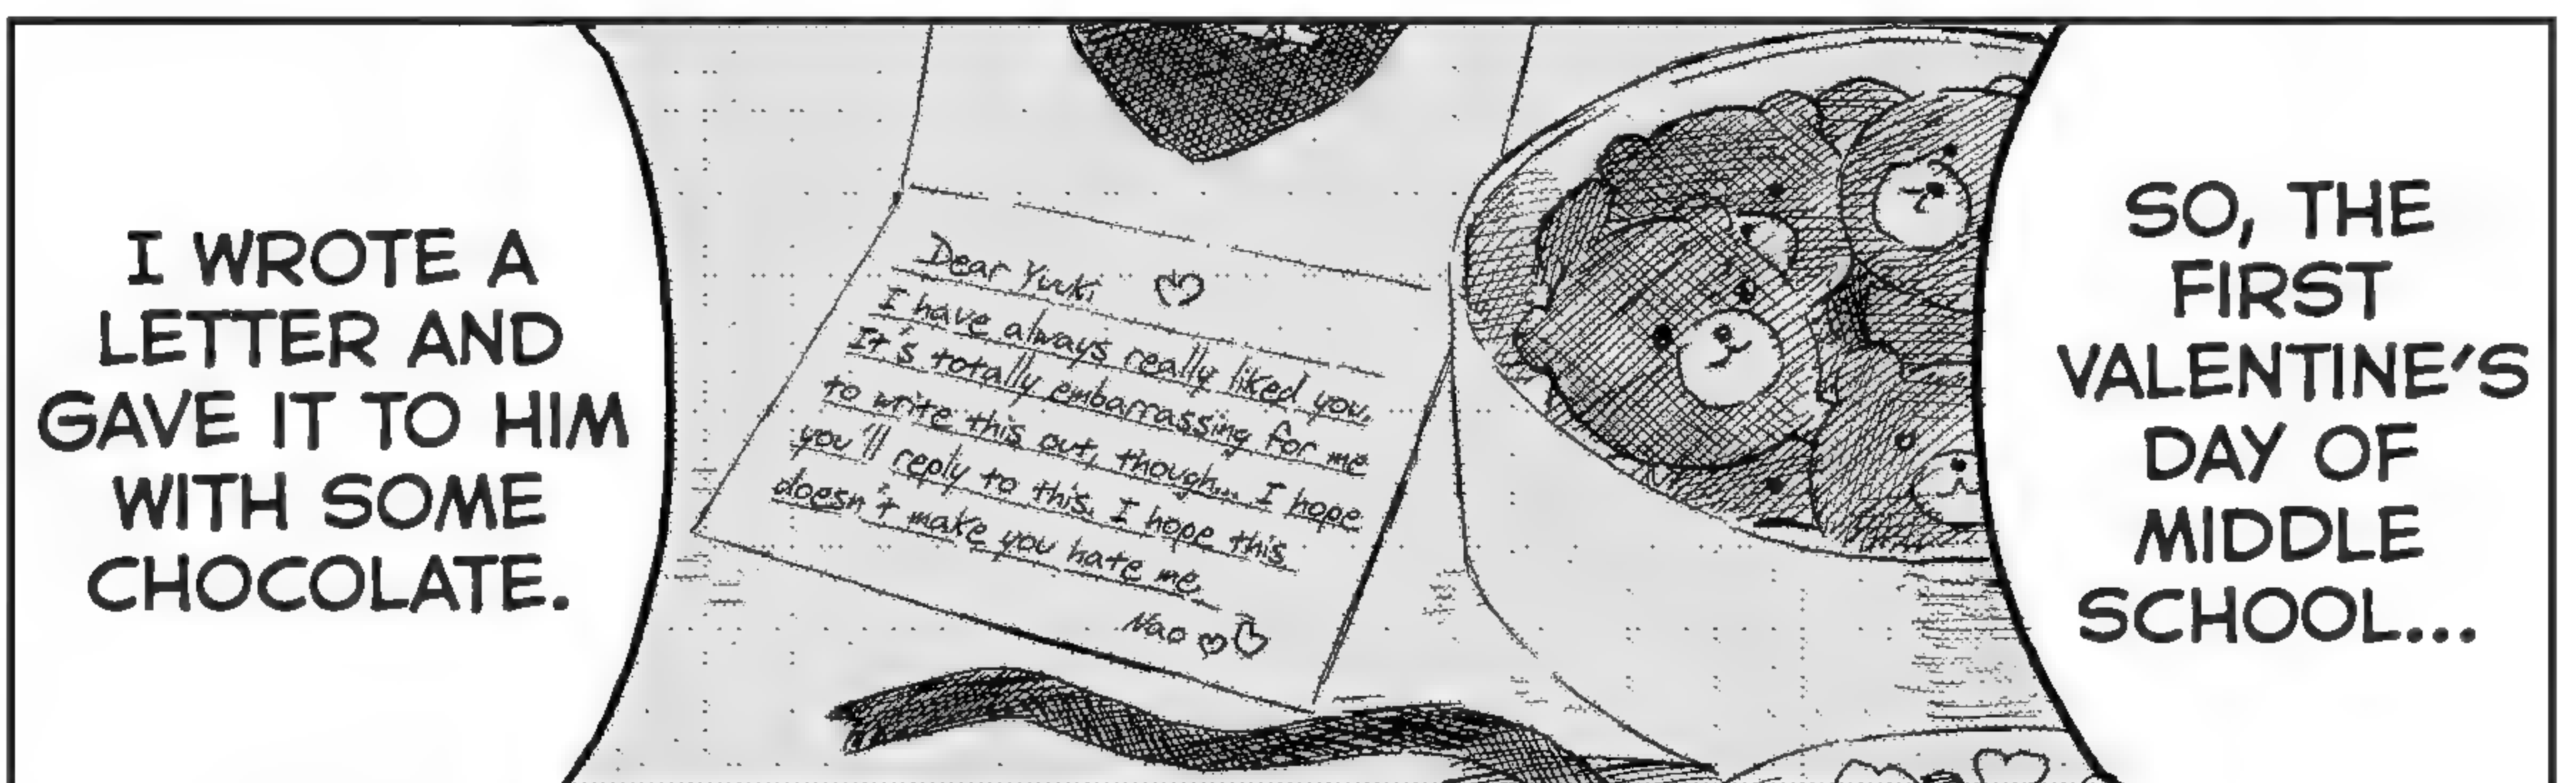 SO, THE
FIRST
VALENTINE'S
DAY OF
MIDDLE
SCHOOL...
Dear Yuuki
I have always really liked you.
It's totally embarrassing for me
to write this out, though... I hope
you'll reply to this. I hope this
doesn't make you hate me.
Nao
I WROTE A
LETTER AND
GAVE IT TO HIM
WITH SOME
CHOCOLATE.